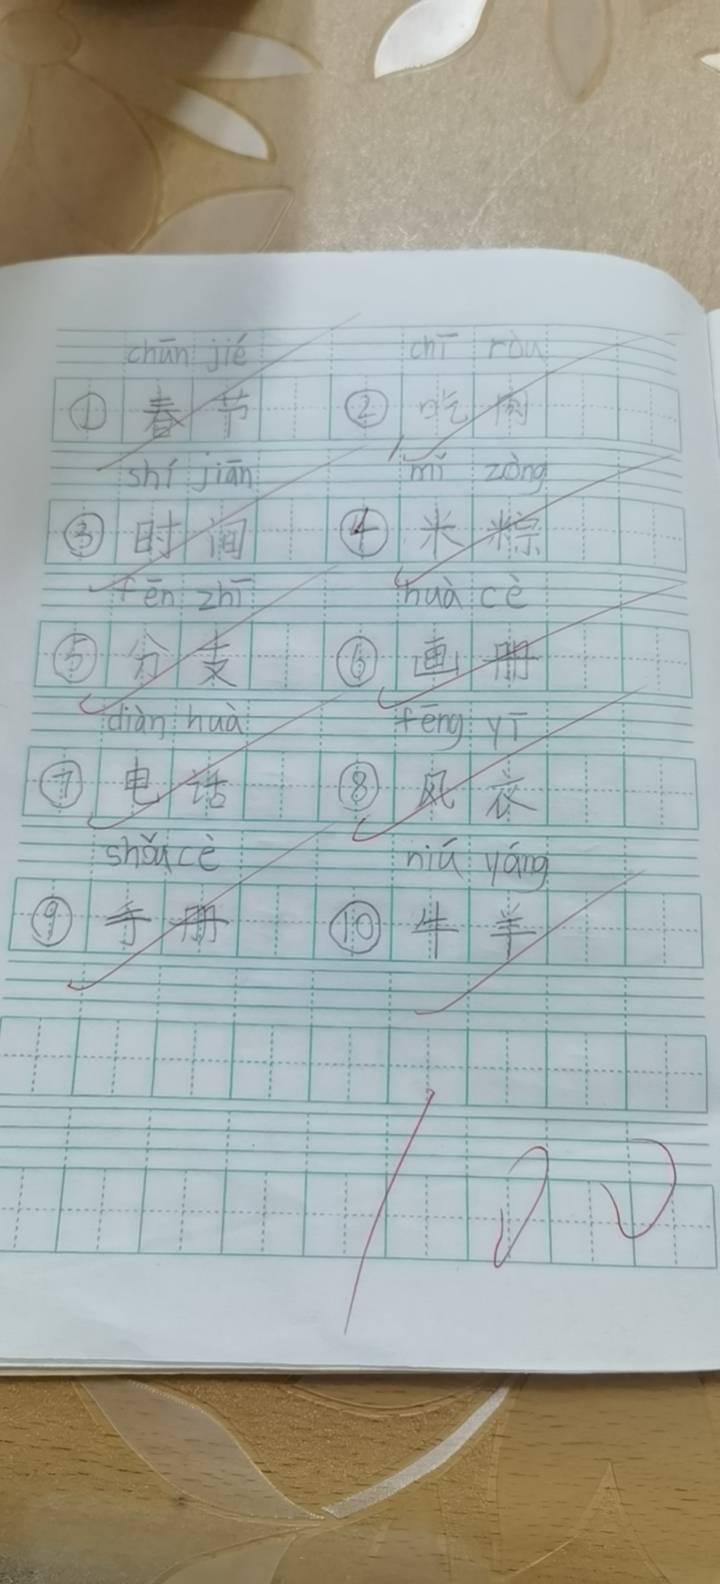 chūn jié chī ròu
① 春节 ② 吃肉
shí jiān mǐ zòng
③ 时间 ④ 米粽
fēn zhī huà cè
⑤ 分支 ⑥ 画册
diàn huà fēng yī
⑦ 电话 ⑧ 风衣
shǒu cè niú yáng
⑨ 手册 ⑩ 牛羊
100